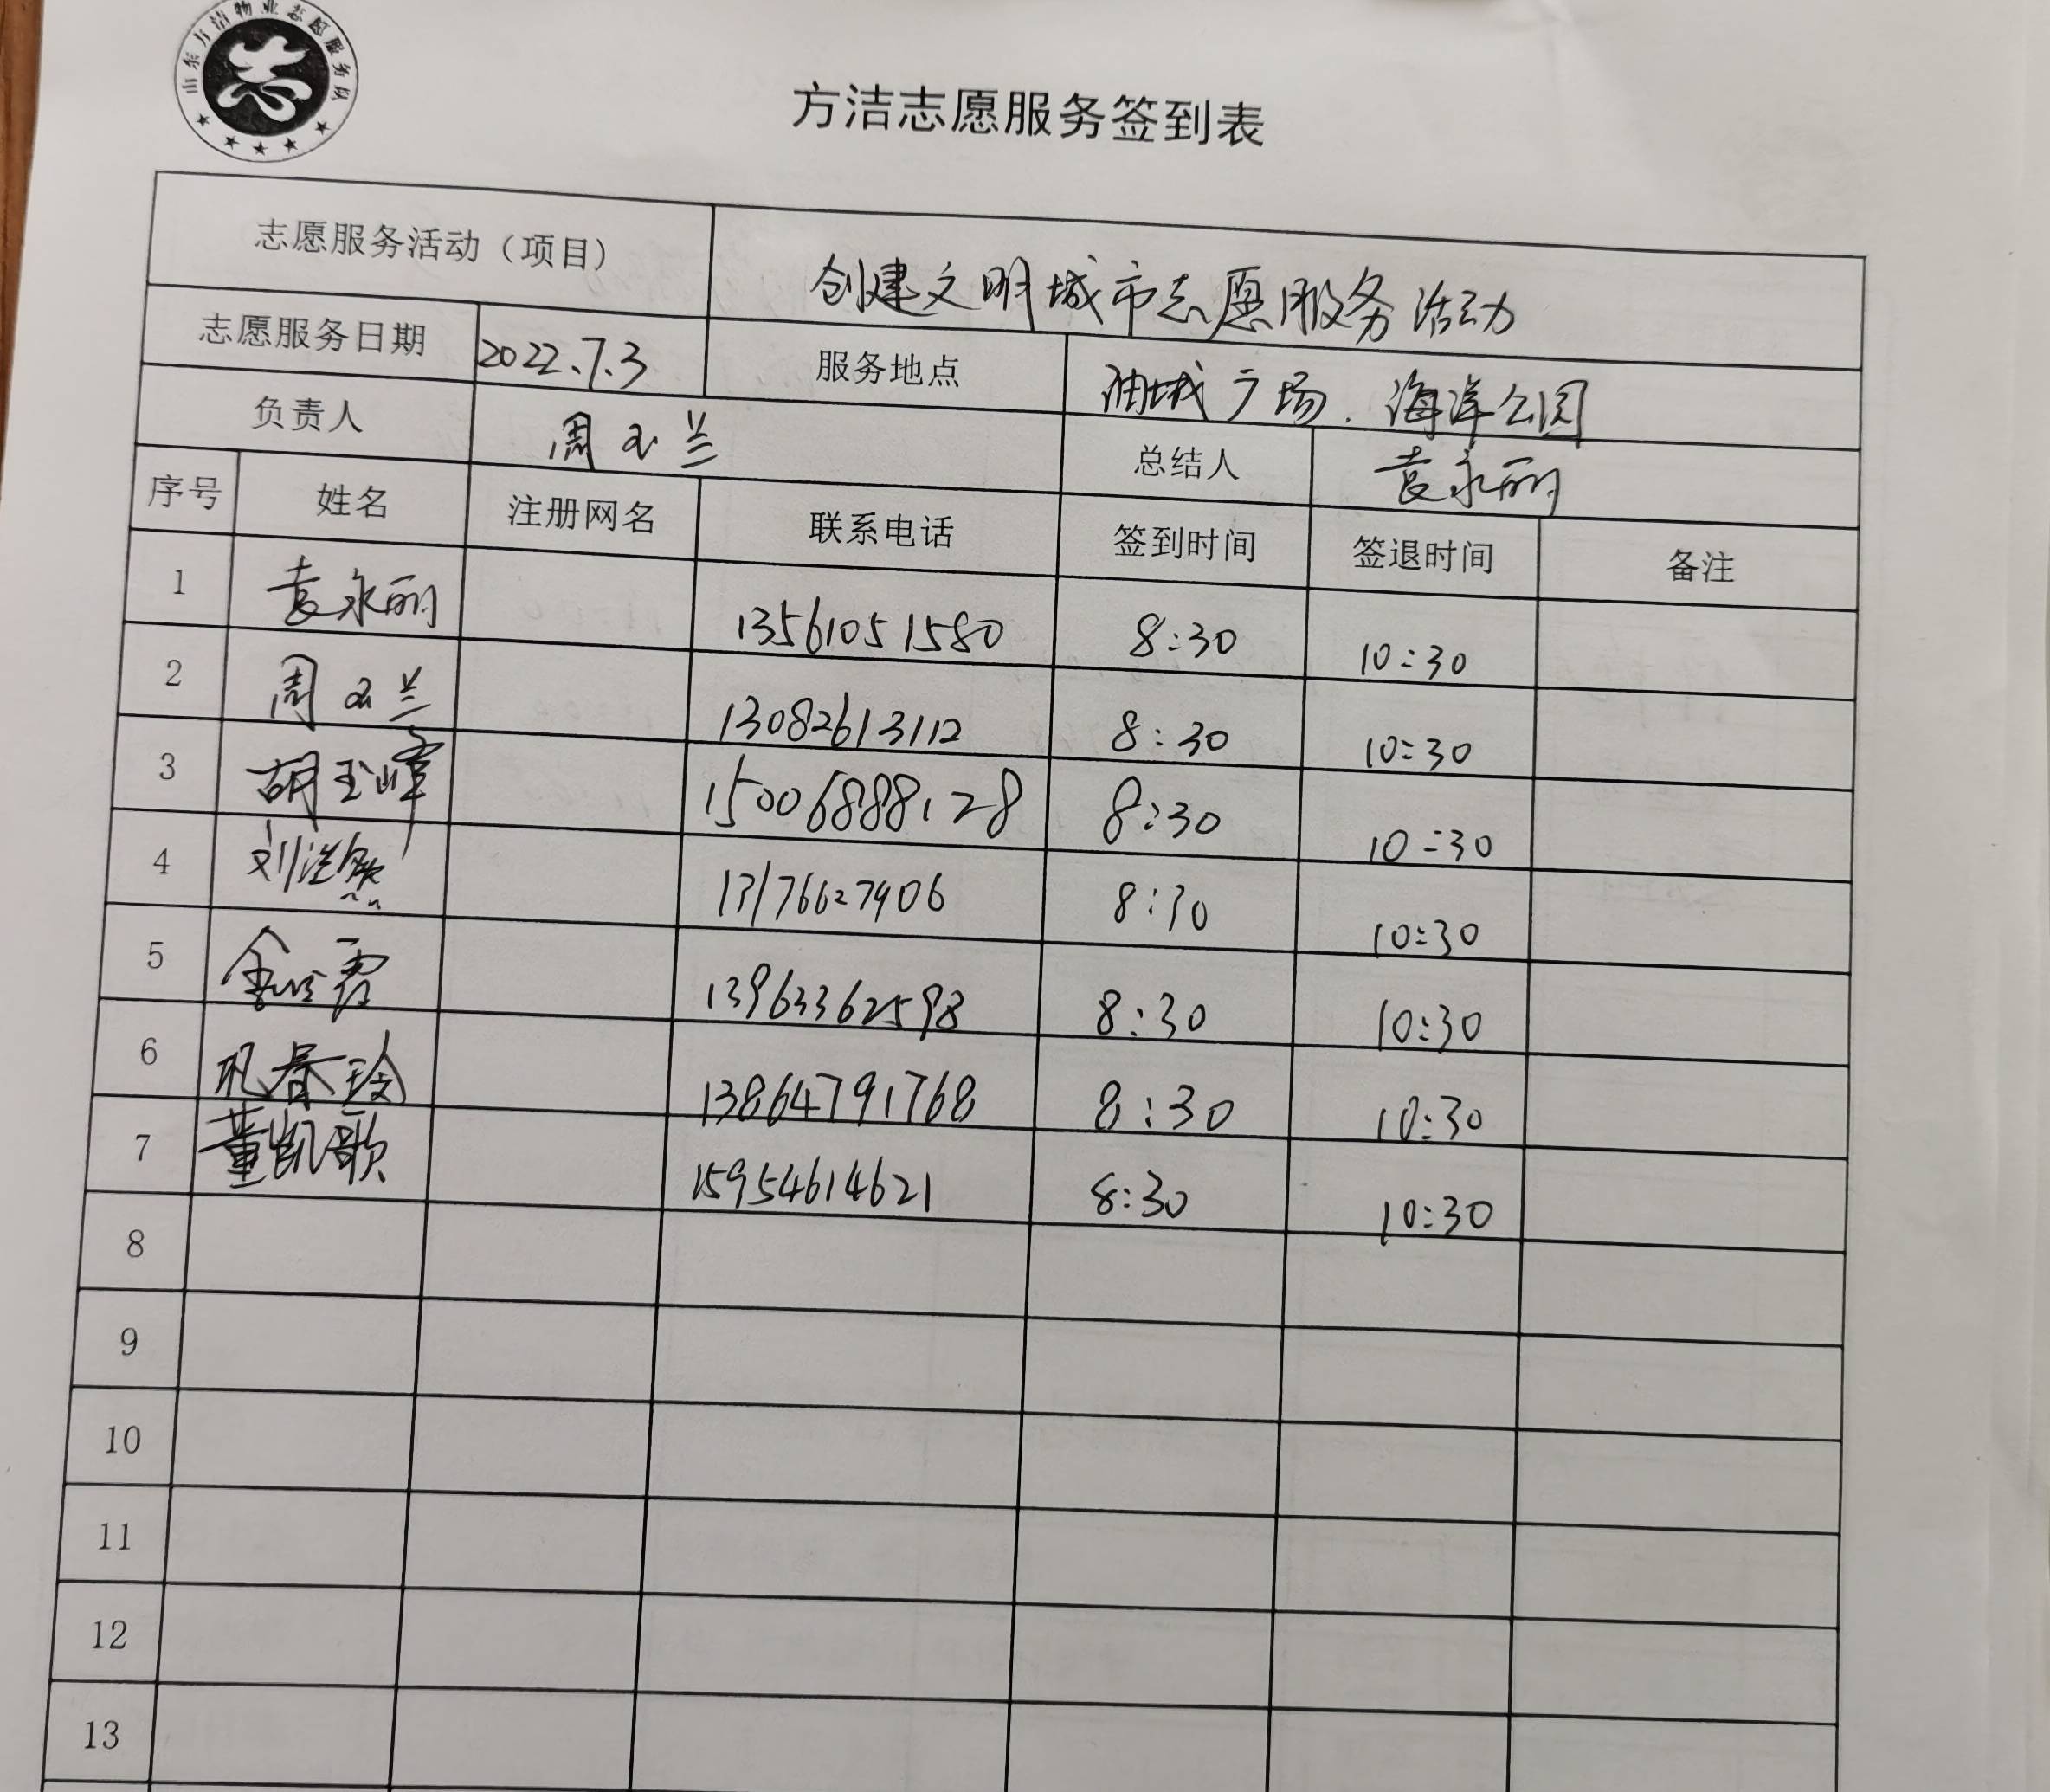 山东方洁物业志愿服务队
方洁志愿服务签到表
志愿服务活动（项目） 创建文明城市志愿服务活动
志愿服务日期 2022.7.3 服务地点 油城广场、海洋公园
负责人 周玉兰 总结人 袁永丽
序号 姓名 注册网名 联系电话 签到时间 签退时间 备注
1 袁永丽 13561051580 8:30 10:30
2 周玉兰 13082613112 8:30 10:30
3 胡玉峰 15006888128 8:30 10:30
4 刘浩然 13176627906 8:30 10:30
5 13963362598 8:30 10:30
6 巩春玲 13864791768 8:30 10:30
7 董凯歌 15954614621 8:30 10:30
8
9
10
11
12
13